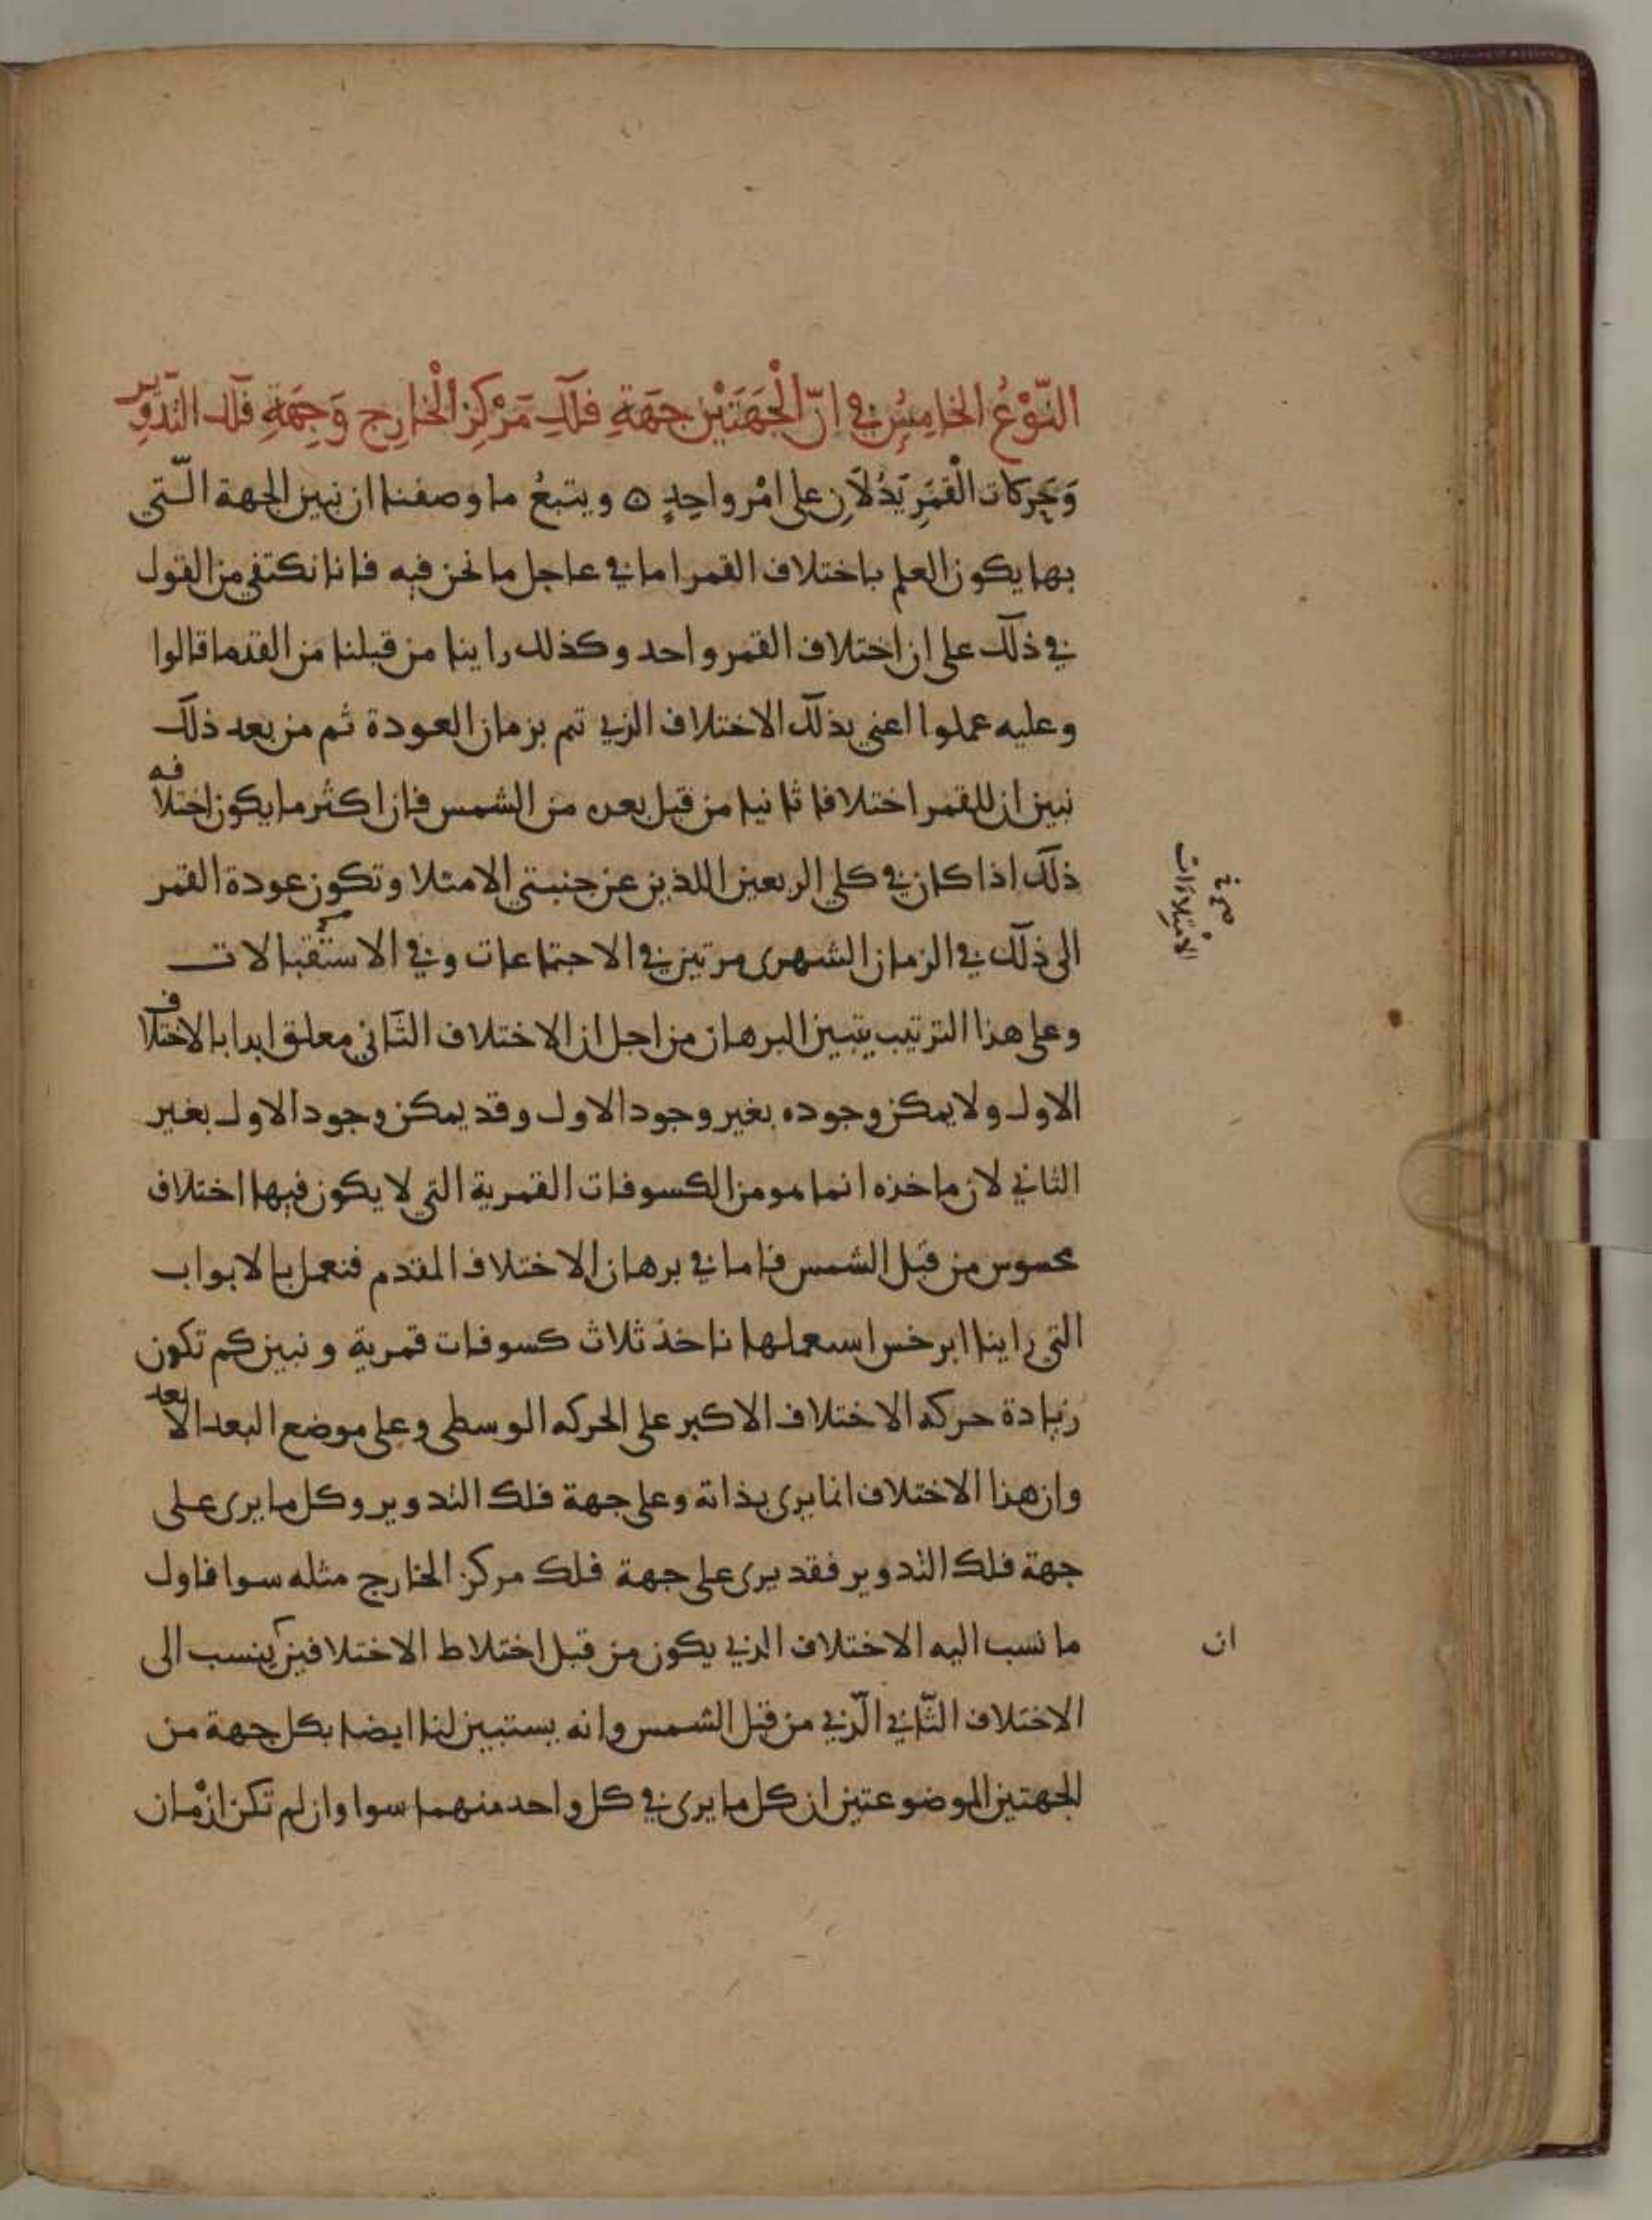 النَّوْعُ الخامِسُ في انّ الْجَهَتَيْنِ جهَةِ فلَكِ مَرْكِزِ الْخارِج وَجِهَةِ فلَك التّدْوِيرِ
وَحَركات الْقَمَرِ يَدُلاَّنِ على امْر واحِدٍ ه ويتبعُ ما وصفنا ان نبين الجهة الّتي
بها يكون العلم باختلاف القمر اما في عاجل ما نحن فيه فانا نكتفي من القول
في ذلك على ان اختلاف القمر واحد وكذلك راينا من قبلنا من القدما قالوا
وعليه عملوا اعني بذلك الاختلاف الذي تم بزمان العودة ثم من بعد ذلك
نبين ان للقمر اختلافا ثانيا من قبل بعده من الشمس فان اكثر ما يكون اختلافه
ذلك اذا كان في كلي الربعين اللذين عن جنبتي الامتلا وتكون عودة القمر
الى ذلك في الزمان الشهرى مرتين في الاجتماعات وفي الاستقبالات
وعلى هذا الترتيب يتبين البرهان من اجل ان الاختلاف الثاني معلق ابدا بالاختلاف
الاول ولا يمكن وجوده بغير وجود الاول وقد يمكن وجود الاول بغير
الثاني لان ماخذه انما هو من الكسوفات القمرية التي لا يكون فيها اختلاف
محسوس من قبل الشمس فاما في برهان الاختلاف المقدم فنعمل بالابواب
التي راينا ابرخس استعملها ناخذ ثلاث كسوفات قمرية ونبين كم تكون
زيادة حركه الاختلاف الاكبر على الحركه الوسطى وعلى موضع البعد الابعد
وان هذا الاختلاف انما يرى بذاته وعلى جهة فلك التدوير وكل ما يرى على
جهة فلك التدوير فقد يرى على جهة فلك مركز الخارج مثله سوا فاول
ما نسب اليه الاختلاف الذي يكون من قبل اختلاط الاختلافين ينسب الى
الاختلاف الثّاني الّذي من قبل الشمس وانه يستبين لنا ايضا بكل جهة من
الجهتين الموضوعتين ان كل ما يرى في كل واحد منهما سوا وان لم تكن ازْمان
في
الامتلاءات
ان